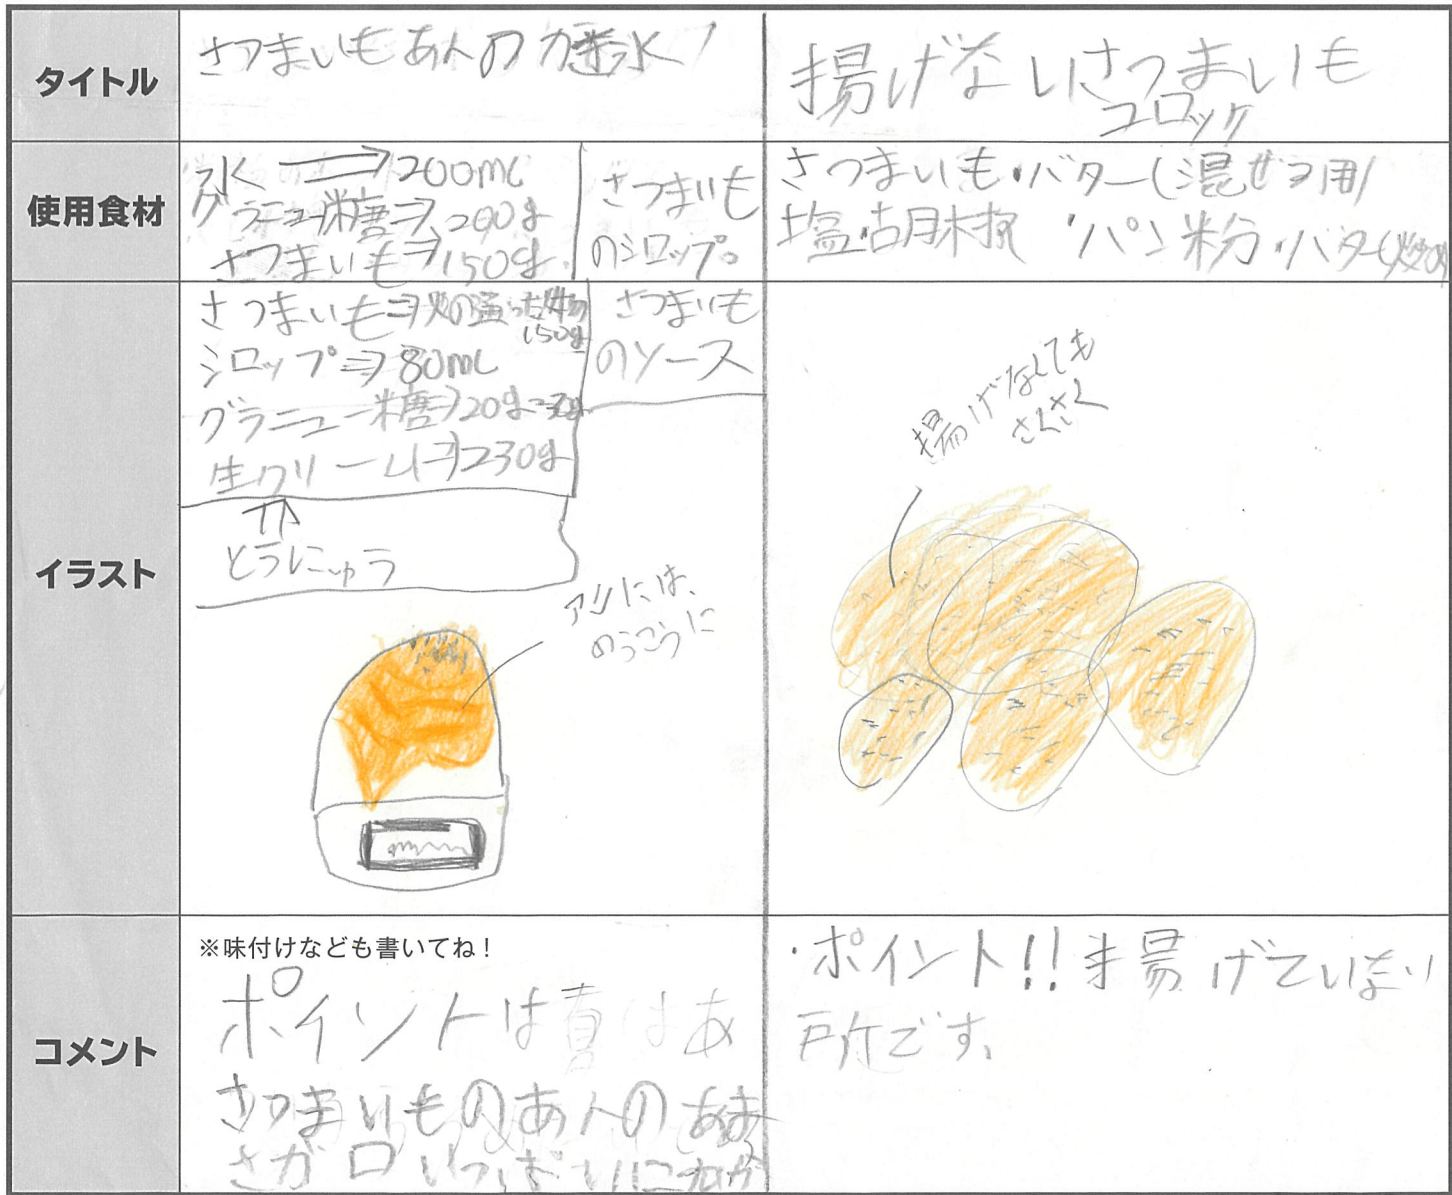 タイトル
さつまいもあんのかき氷
揚げないさつまいも
コロッケ
使用食材
水⇒200mL
グラニュー糖⇒200g
さつまいも⇒150g
さつまいも
のシロップ。
さつまいも・バター(混ぜる用)
塩・胡椒・パン粉・バター
イラスト
さつまいも⇒火の通った物
150g
シロップ⇒80mL
グラニュー糖⇒20g
生クリーム⇒230g
さつまいも
のソース
とうにゅう
アンには、
のうこうに
揚げなくても
さくさく
コメント
※味付けなども書いてね!
ポイントは
さつまいものあんのあま
さが口いっぱいに
・ポイント!!揚げていない
所です。